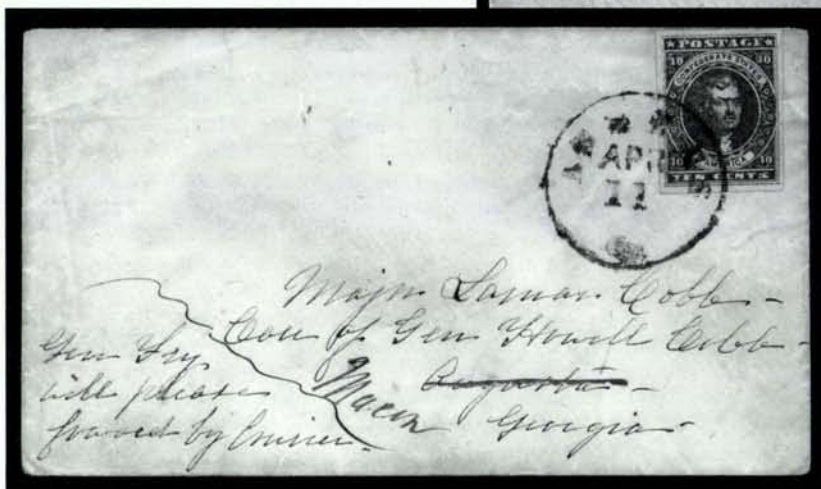 ★POSTAGE★
10 10
CONFEDERATE STATES
OF AMERICA
10 10
TEN CENTS
APR
11
Majr Lamar Cobb –
Care of Gen Howell Cobb –
Augusta –
Macon
Georgia –
Gen Fry
will please
forward by Courier.